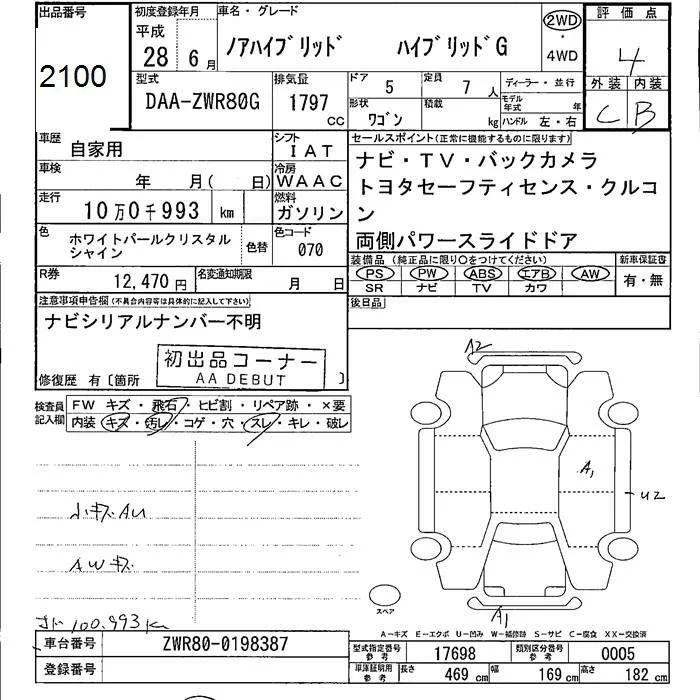 出品番号
2100
初度登録年月
平成
28年6月
車名・グレード
ノアハイブリッド ハイブリッドG
2WD
・
4WD
評価点
4
外装 内装
C B
型式
DAA-ZWR80G
排気量
1797
CC
ドア 5
定員 7 人
ディーラー・並行
形状 ワゴン
積載 kg
モデル年式 年
ハンドル 左・右
車歴 自家用
シフト IAT
車検 年 月( 日)
冷房 WAAC
走行 10万0千993 km
燃料 ガソリン
色 ホワイトパールクリスタルシャイン
色替
色コード 070
R券 12,470円
名変通知期限 月 日
セールスポイント(正常に機能するものに限ります)
ナビ・TV・バックカメラ
トヨタセーフティセンス・クルコ
ン
両側パワースライドドア
装備品 (純正品に限り○をつけてください)
PS PW ABS エアB AW
SR ナビ TV カワ
新車保証書
有・無
後日品
注意事項申告欄(不具合内容等は具体的に記入して下さい)
ナビシリアルナンバー不明
初出品コーナー
AA DEBUT
修復歴 有〔箇所 〕
検査員記入欄
FW キズ・飛石・ヒビ割・リペア跡・×要
内装 キズ・汚レ・コゲ・穴・スレ・キレ・破レ
小キズAU
AWキズ
100.993km
A2
A1
U2
A1
スペア
A-キズ E-エクボ U-凹み W-補修跡 S-サビ C-腐食 XX-交換済
車台番号 ZWR80-0198387
登録番号
型式指定番号 参考 17698
類別区分番号 参考 0005
車庫証明用 参考
長さ 469 cm
幅 169 cm
高さ 182 cm